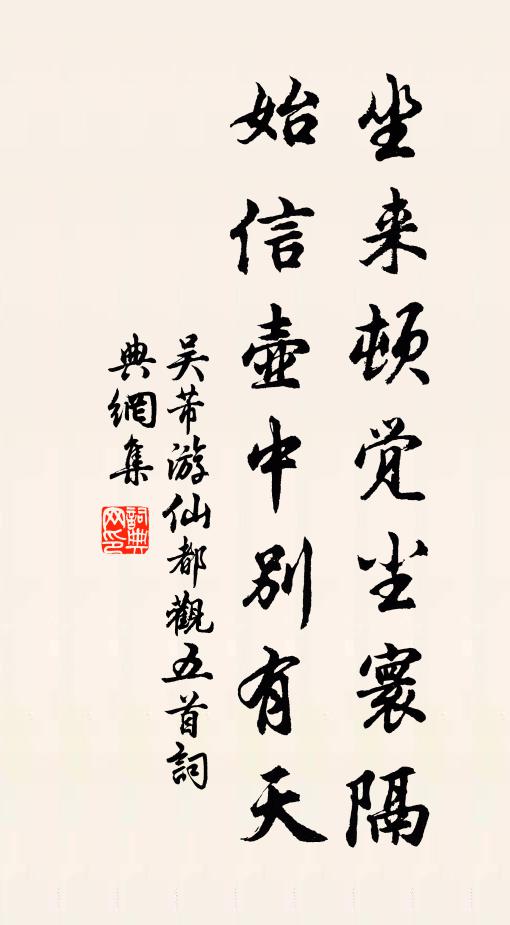 坐来顿觉尘寰隔
始信壶中别有天
吴芾游仙都觀五首詞
典網集
詞典网印